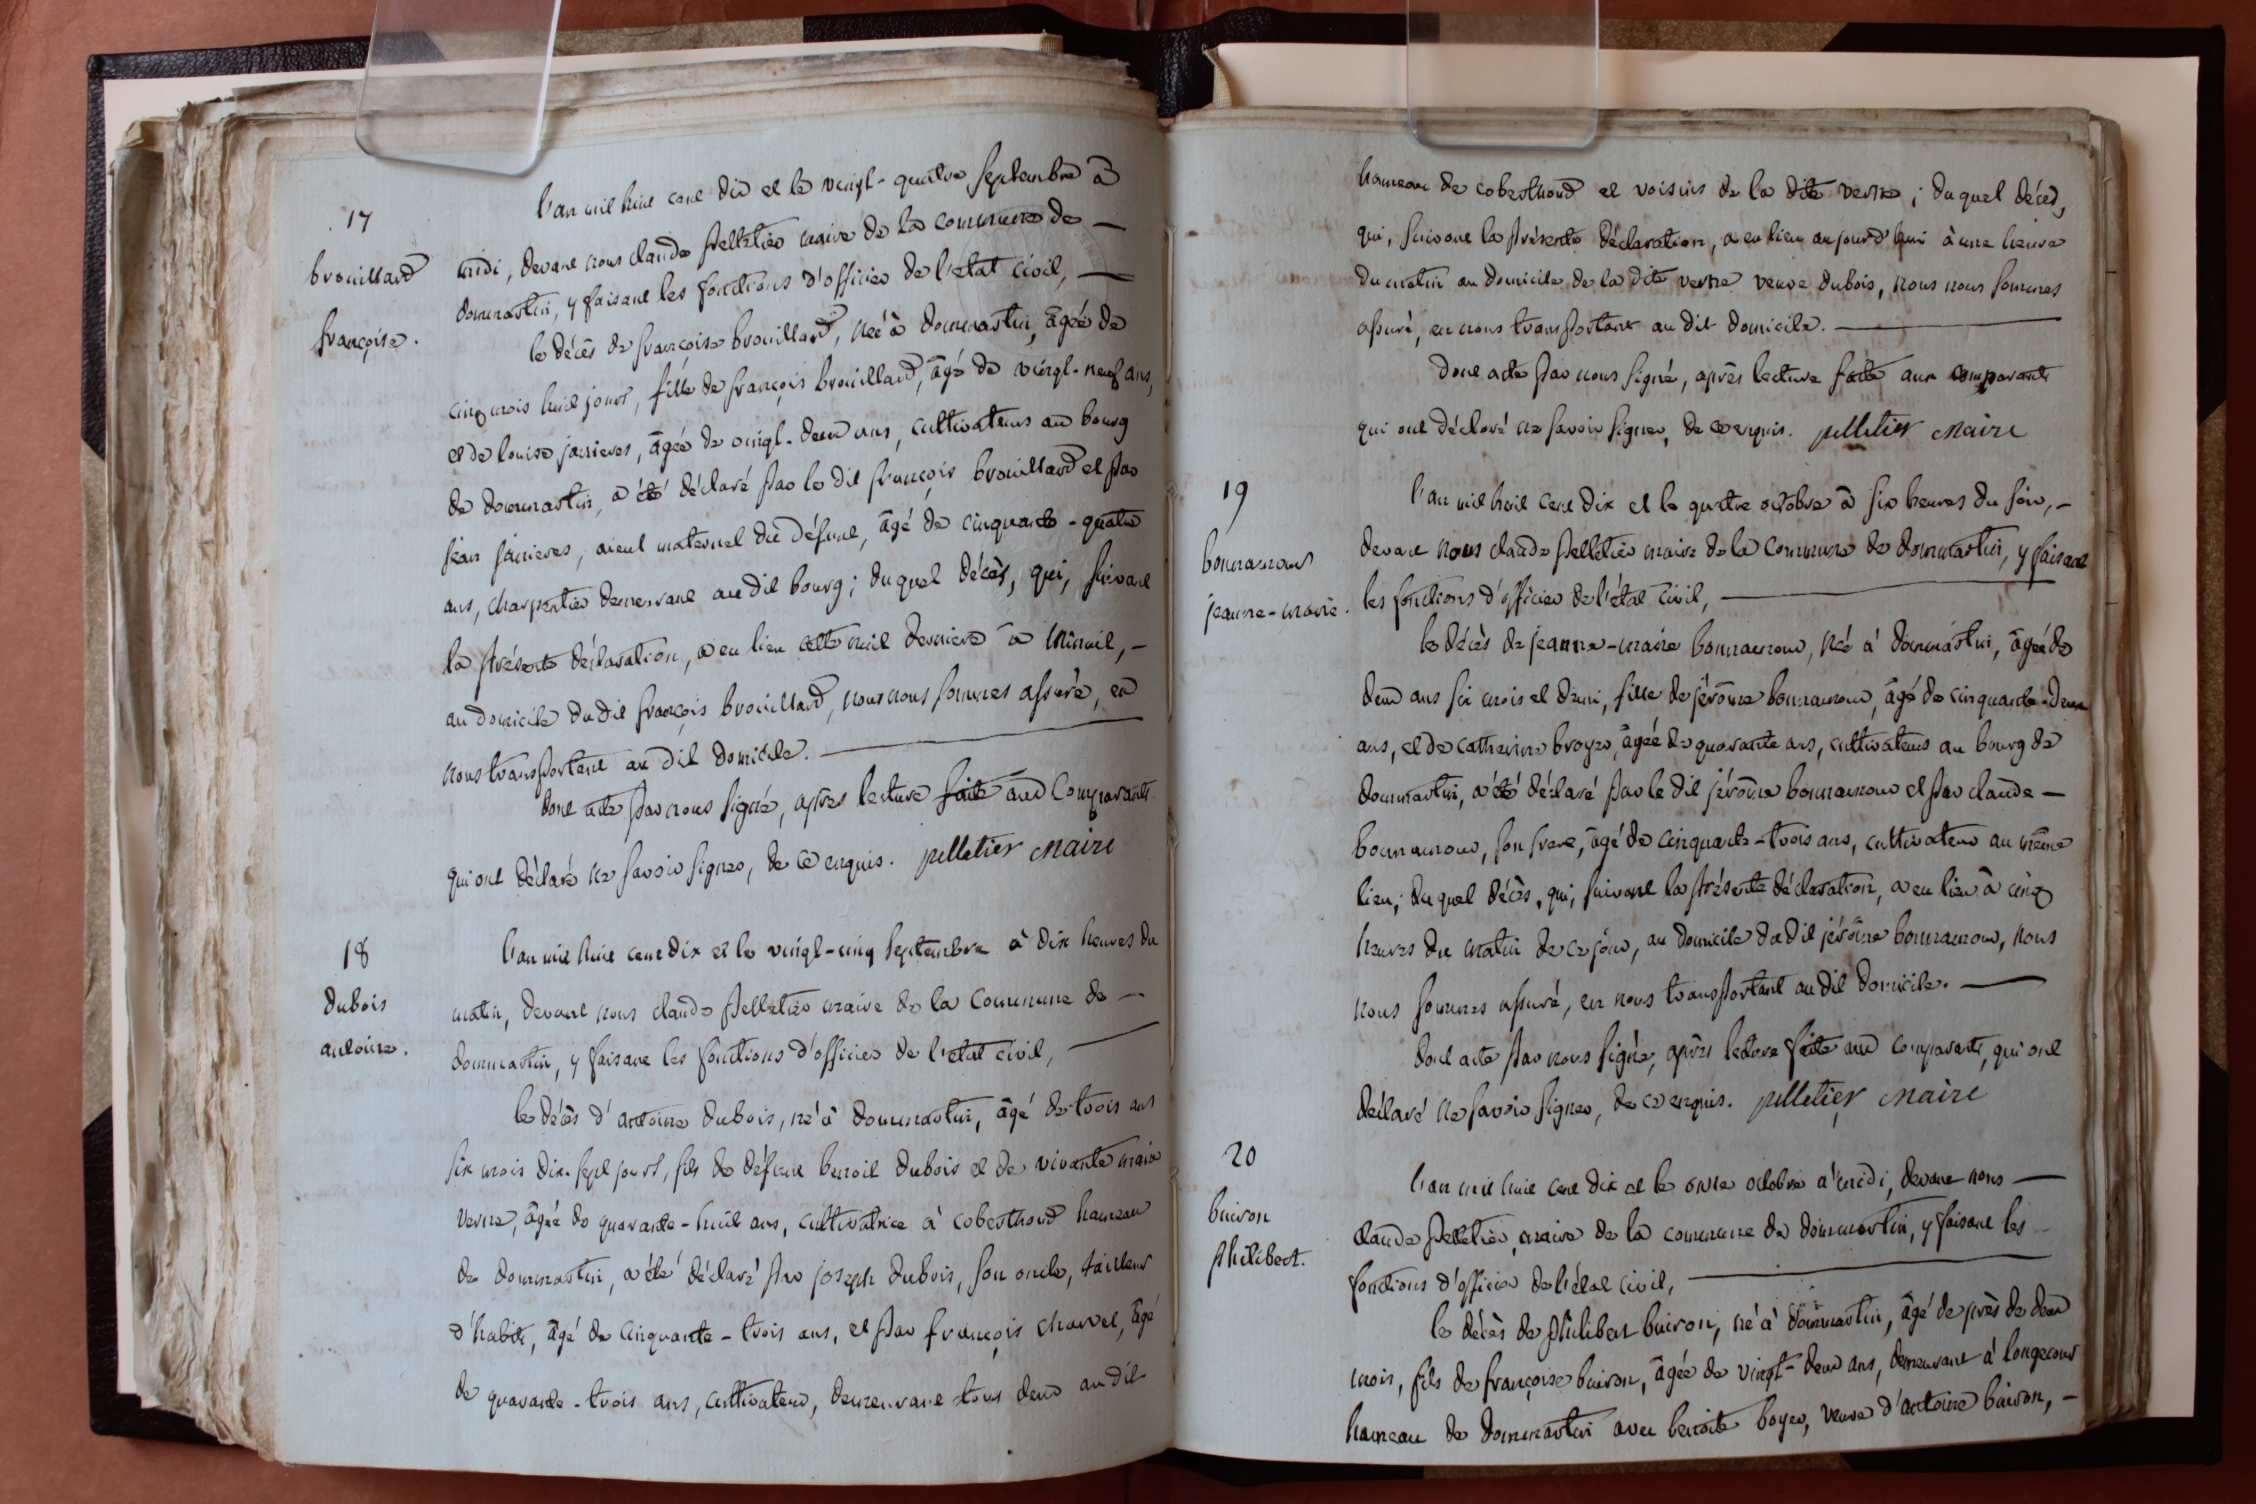 17
brouillard
françoise.
l'an mil huit cent dix et le vingt-quatre septembre à
midi, devant nous claude pelletier maire de la commune de —
dommartin, y faisant les fonctions d'officier de l'etat civil, —
le décès de françoise brouillard, née à dommartin, âgée de
cinq mois huit jours, fille de françois brouillard, âgé de vingt-neuf ans,
et de louise janieres, âgée de vingt-deux ans, cultivateurs au bourg
de dommartin, a été déclaré par le dit françois brouillard et par
jean janieres, aieul maternel du défunt, âgé de cinquante-quatre
ans, charpentier demeurant au dit bourg; du quel décès, qui, suivant
la présente déclaration, a eu lieu cette nuit derniere à minuit, —
au domicile du dit françois brouillard, nous nous sommes assuré, en
nous transportant au dit domicile. —
dont acte par nous signé, après lecture faite aux comparants
qui ont déclaré ne savoir signer, de ce enquis. pelletier maire
18
dubois
antoine.
l'an mil huit cent dix et le vingt-cinq septembre à dix heures du
matin, devant nous claude pelletier maire de la commune de —
dommartin, y faisant les fonctions d'officier de l'etat civil, —
le décès d'antoine dubois, né à dommartin, âgé de trois ans
six mois dix-sept jours, fils de défunt benoit dubois et de vivante marie
verne, âgée de quarante-huit ans, cultivatrice à coberthoud hameau
de dommartin, a été déclaré par joseph dubois, son oncle, tailleur
d'habits, âgé de cinquante-trois ans, et par françois charvet, âgé
de quarante-trois ans, cultivateur, demeurant tous deux au dit
hameau de coberthoud et voisins de la dite verne; du quel décès,
qui, suivant la présente déclaration, a eu lieu aujourd'hui à une heure
du matin au domicile de la dite verne veuve dubois, nous nous sommes
assuré, en nous transportant au dit domicile. —
dont acte par nous signé, après lecture faite aux comparants
qui ont déclaré ne savoir signer, de ce enquis. pelletier maire
19
bonnamour
jeanne-marie.
l'an mil huit cent dix et le quatre octobre à six heures du soir, —
devant nous claude pelletier maire de la commune de dommartin, y faisant
les fonctions d'officier de l'état civil, —
le décès de jeanne-marie bonnamour, née à dommartin, âgée de
deux ans six mois et demi, fille de jérôme bonnamour, âgé de cinquante-deux
ans, et de catherine broyer, âgée de quarante ans, cultivateurs au bourg de
dommartin, a été déclaré par le dit jérôme bonnamour et par claude —
bonnamour, son frere, âgé de cinquante-trois ans, cultivateur au même
lieu; du quel décès, qui, suivant la présente déclaration, a eu lieu à cinq
heures du matin de ce jour, au domicile du dit jérôme bonnamour, nous
nous sommes assuré, en nous transportant au dit domicile. —
dont acte par nous signé, après lecture faite aux comparants, qui ont
déclaré ne savoir signer, de ce enquis. pelletier maire
20
buiron
philibert.
l'an mil huit cent dix et le onze octobre à midi, devant nous —
claude pelletier, maire de la commune de dommartin, y faisant les —
fonctions d'officier de l'état civil, —
le décès de philibert buiron, né à dommartin, âgé de près de deux
mois, fils de françoise buiron, âgée de vingt-deux ans, demeurant à longecour
hameau de dommartin avec benoite boyer, veuve d'antoine buiron, —